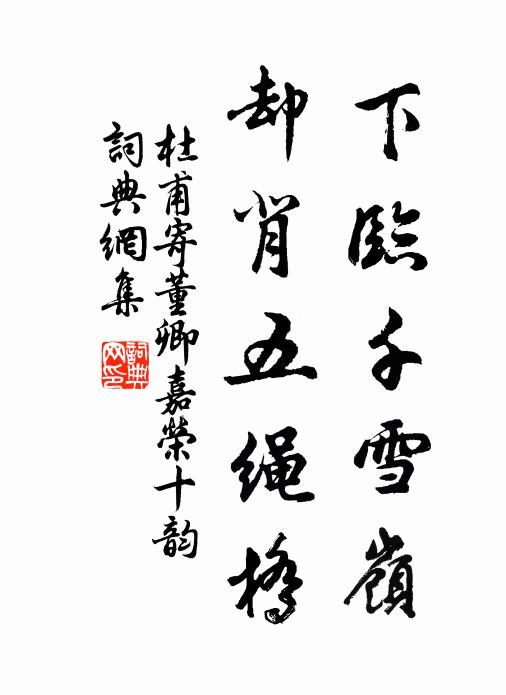 下臨千雪嶺
却背五绳橋
杜甫寄董卿嘉榮十韵
詞典網集
詞典網印